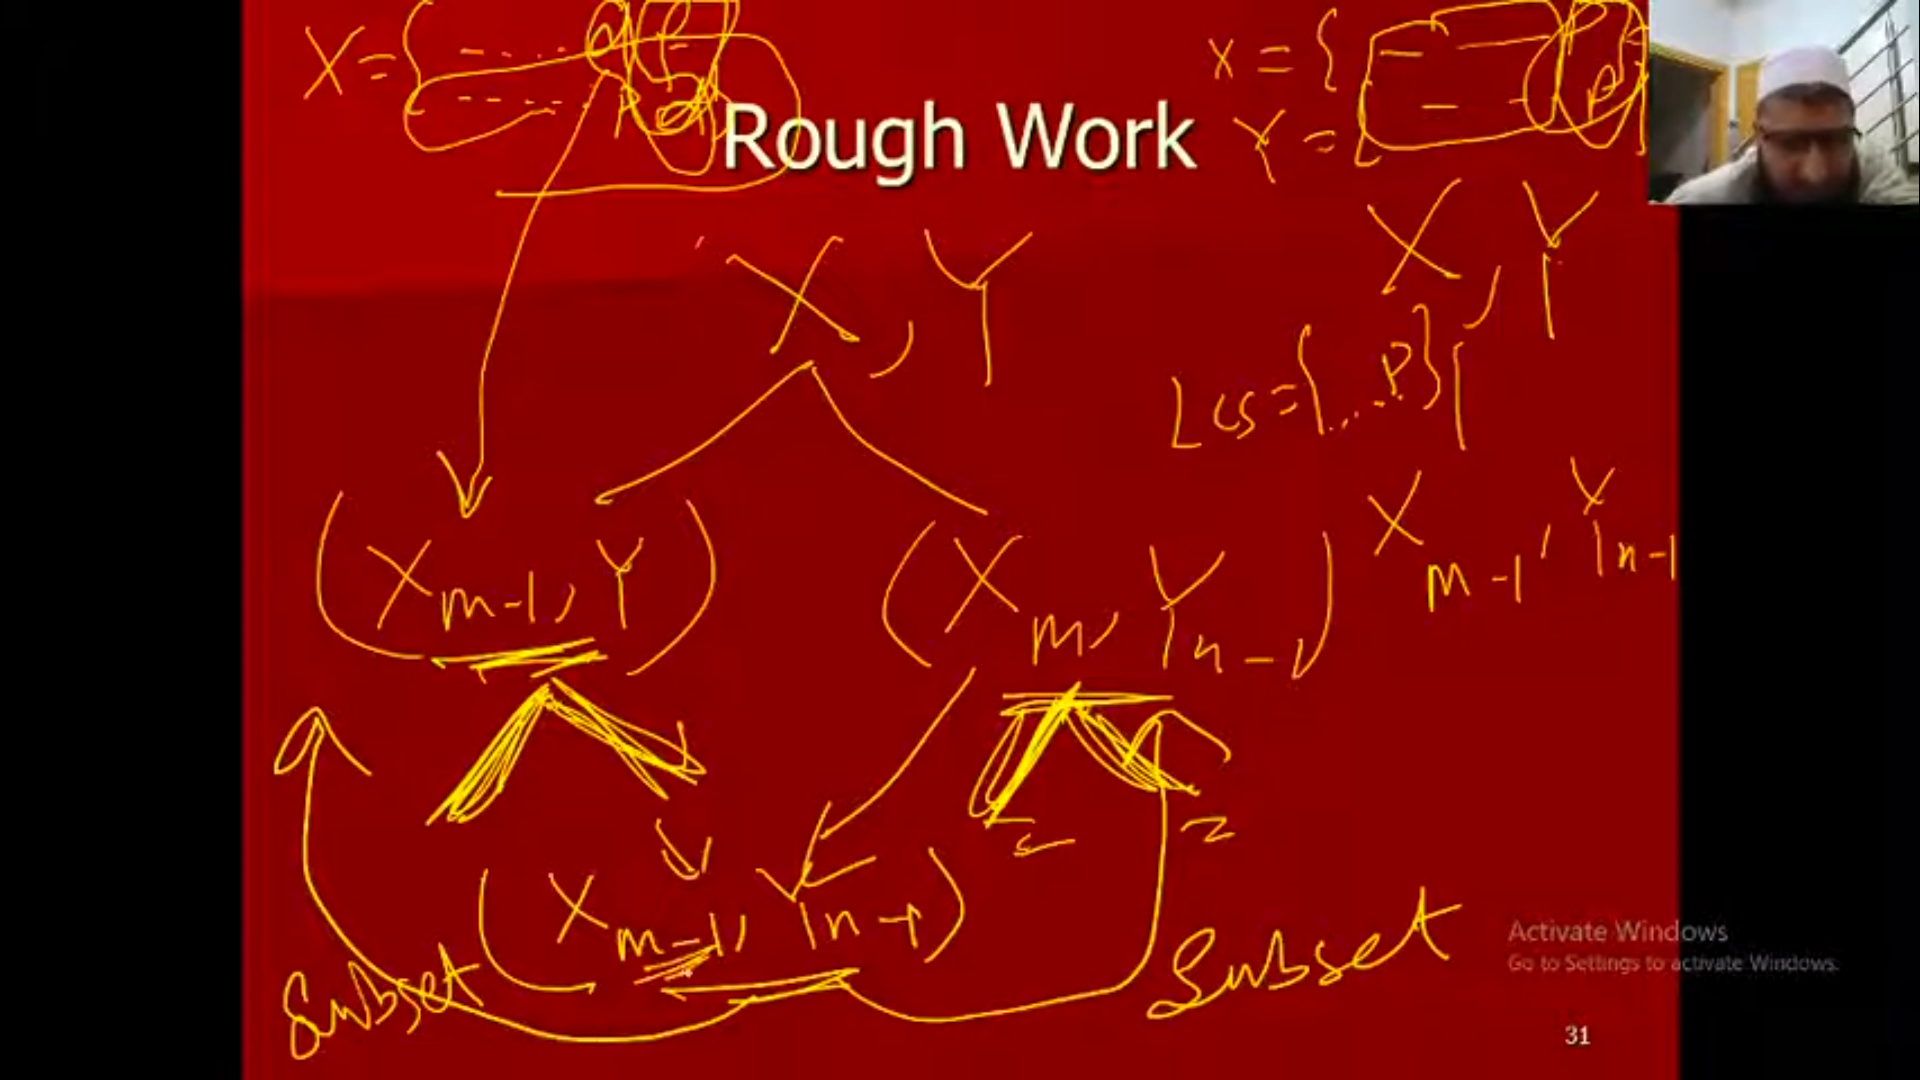 X = {
X = {
Y = {
Rough Work
X, Y
X, Y
Lcs = {...P}
(Xm-1, Y)
(Xm, Yn-1)
Xm-1, Yn-1
(Xm-1, Yn-1)
Subset
Subset
Activate Windows
Go to Settings to activate Windows.
31